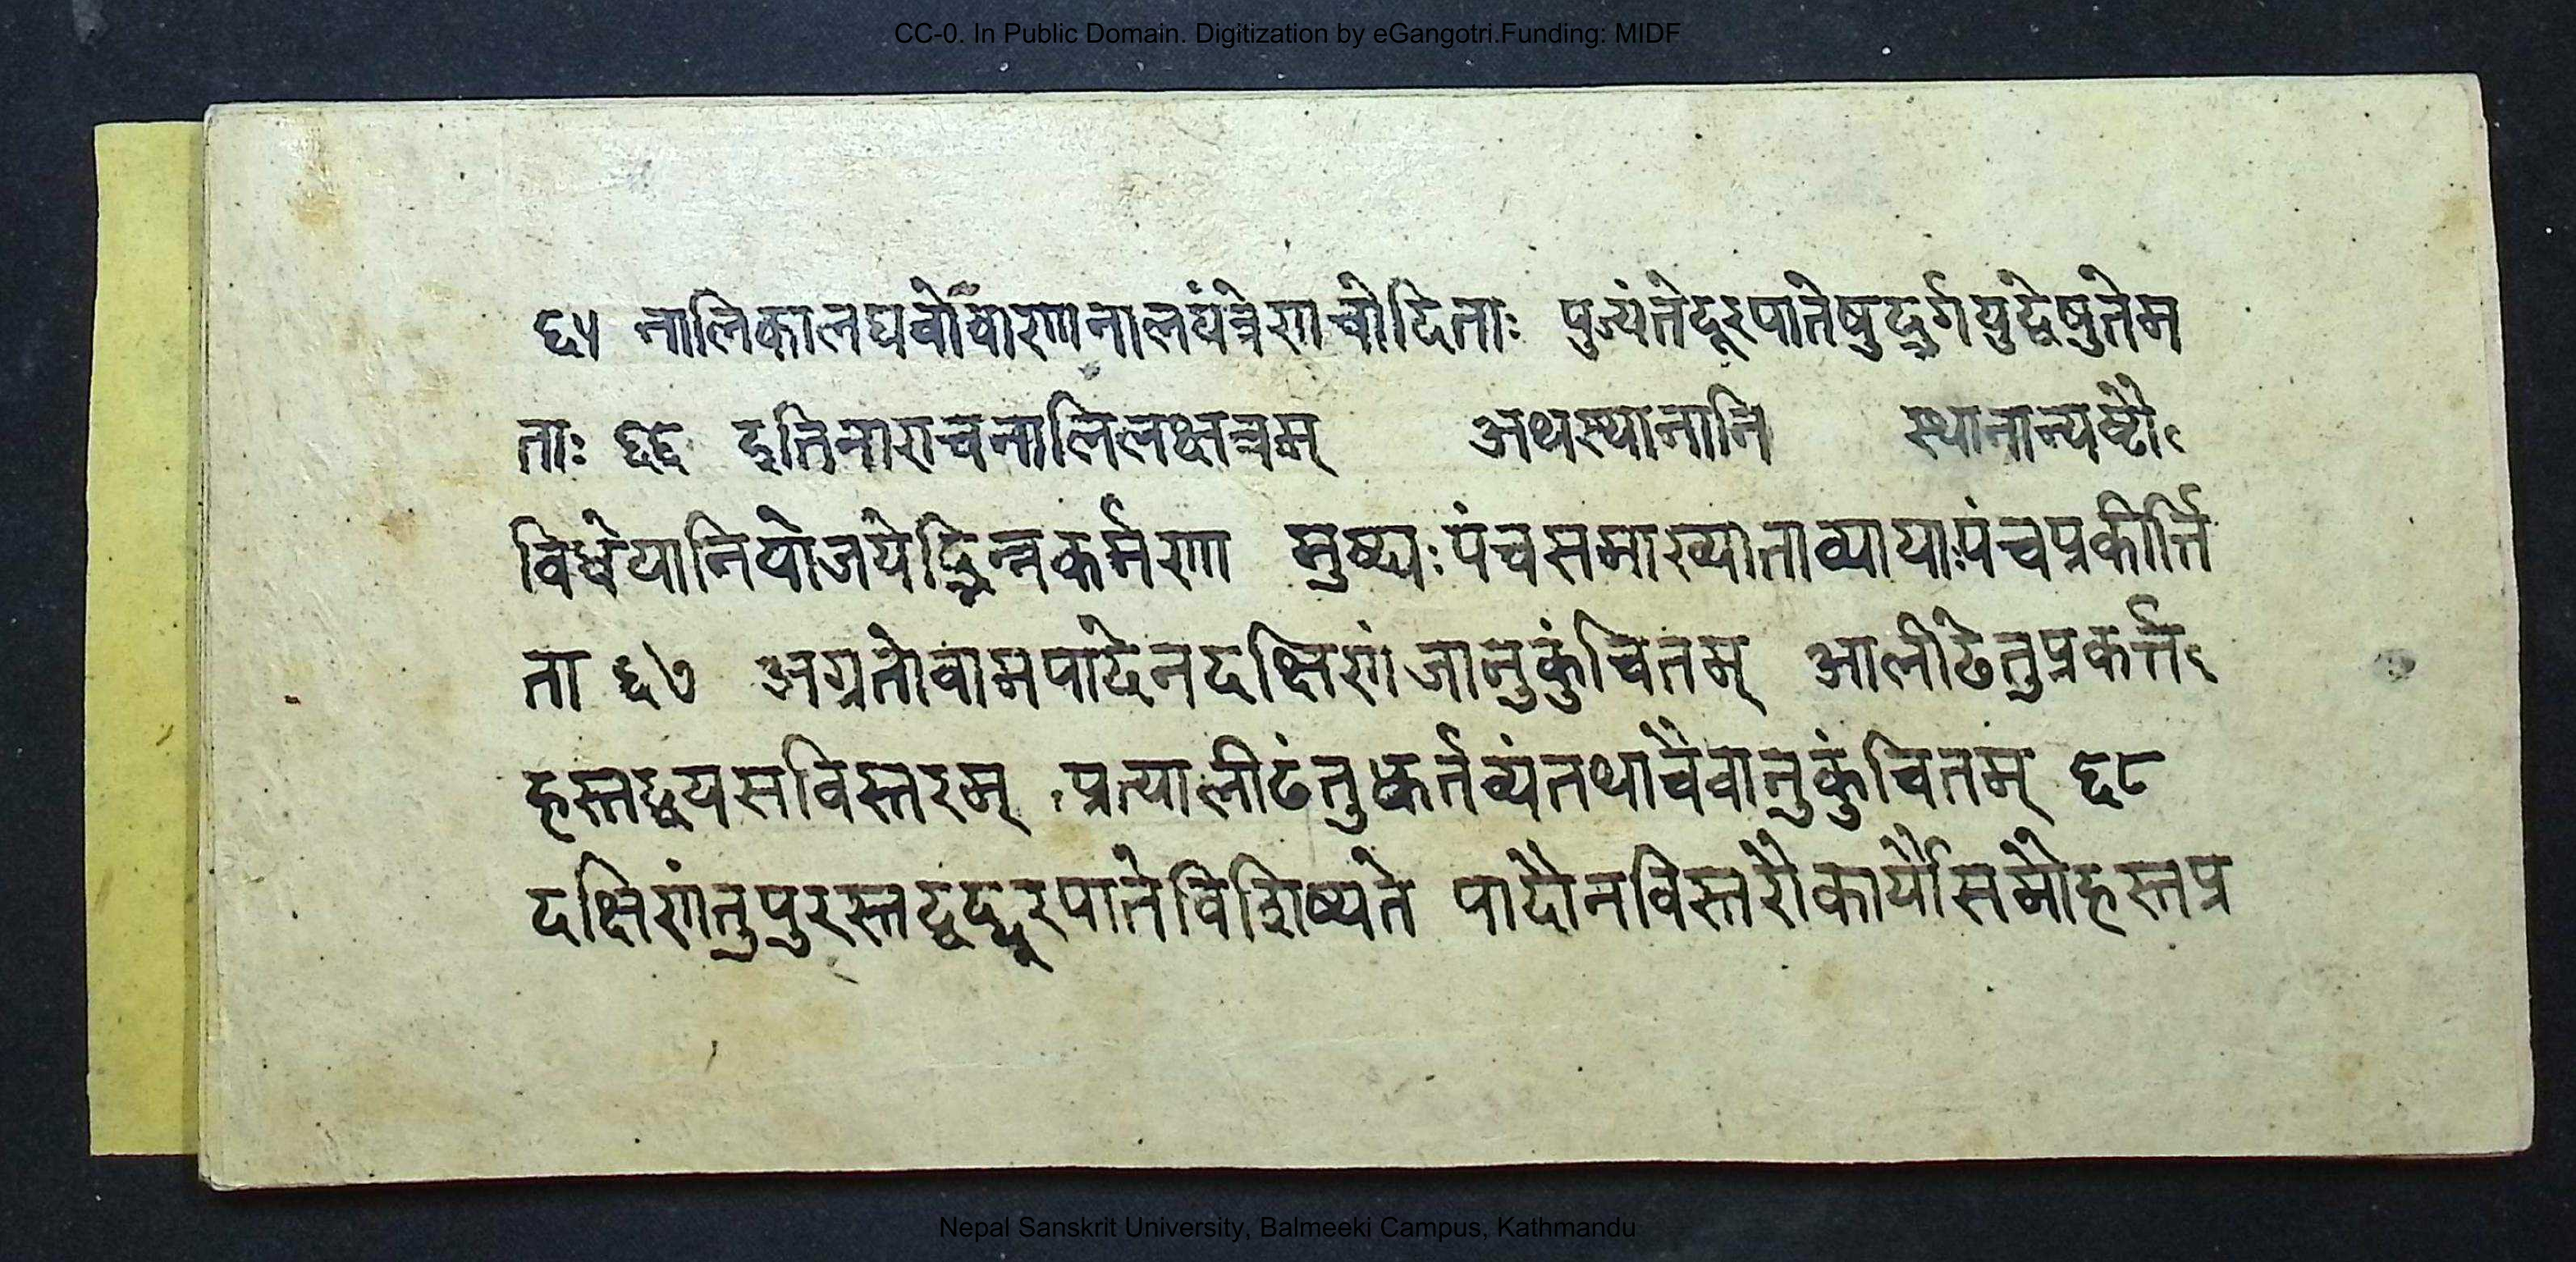 CC-0. In Public Domain. Digitization by eGangotri.Funding: MIDF
६५ नालिकालघवोवाणानालयंत्रेणचोदिताः पुज्यंतेदूरपातेषुदुर्गयुद्धेषुतेम
ताः ६६ इतिनाराचनालिलक्षन्नम् अथस्थानानि स्थानान्यष्टौ
विधेयानियोजयेद्भिन्नकर्मणा मुष्ठ्यःपंचसमाख्याताव्यायाःपंचप्रकीर्त्ति
ता ६७ अग्रतोवामपादेनदक्षिणंजानुकुंचितम् आलीढेतुप्रकर्त्त
हस्तद्वयसविस्तरम् प्रत्यालीढंतुकर्तव्यंतथाचैवानुकुंचितम् ६८
दक्षिणंतुपुरस्तद्वद्दूरपातेविशिष्यते पादौनविस्तरौकार्यौसमौहस्तप्र
Nepal Sanskrit University, Balmeeki Campus, Kathmandu